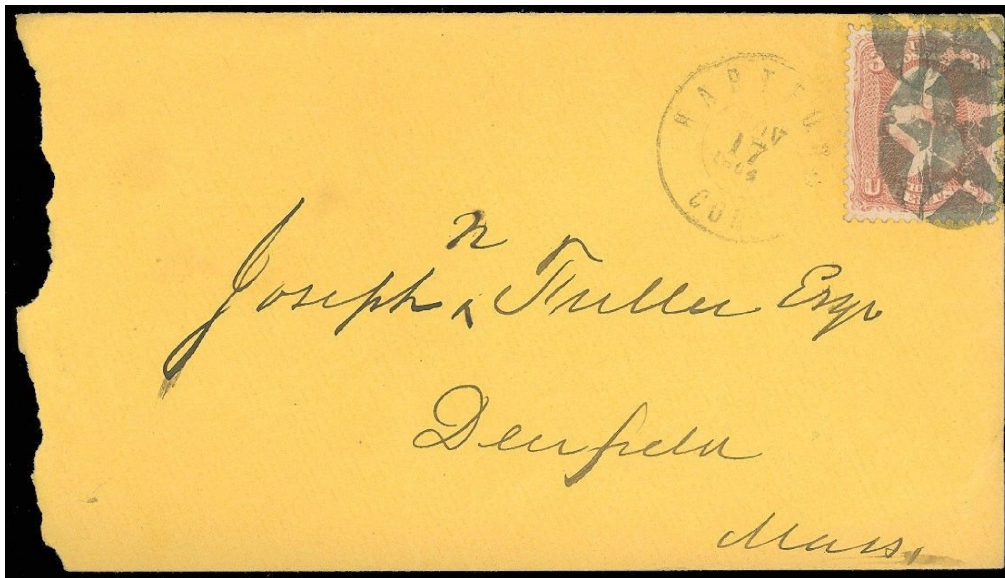 HARTFO
17
CO
Joseph N Fuller Esqr
Deerfield
Mass.